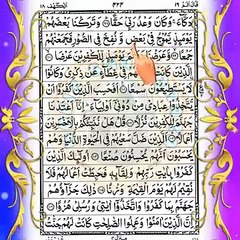 قال الم ١٦ ٤٢٣ الكهف ١٨
دَكَّآءَ ۚ وَكَانَ وَعْدُ رَبِّىْ حَقًّا ۝ وَتَرَكْنَا بَعْضَهُمْ
يَوْمَئِذٍ يَّمُوْجُ فِىْ بَعْضٍ وَّنُفِخَ فِى الصُّوْرِ فَجَمَعْنٰهُمْ
جَمْعًا ۝ وَّعَرَضْنَا يَوْمَئِذٍ لِّلْكٰفِرِيْنَ عَرْضَا ۝
الَّذِيْنَ كَانَتْ اَعْيُنُهُمْ فِىْ غِطَآءٍ عَنْ ذِكْرِىْ وَكَانُوْا
لَا يَسْتَطِيْعُوْنَ سَمْعًا ۝ اَفَحَسِبَ الَّذِيْنَ كَفَرُوْٓا اَنْ
يَّتَّخِذُوْا عِبَادِىْ مِنْ دُوْنِىْٓ اَوْلِيَآءَ ؕ اِنَّآ اَعْتَدْنَا
جَهَنَّمَ لِلْكٰفِرِيْنَ نُزُلًا ۝ قُلْ هَلْ نُنَبِّئُكُمْ بِالْاَخْسَرِيْنَ
اَعْمَالًا ۝ اَلَّذِيْنَ ضَلَّ سَعْيُهُمْ فِى الْحَيٰوةِ الدُّنْيَا وَهُمْ
يَحْسَبُوْنَ اَنَّهُمْ يُحْسِنُوْنَ صُنْعًا ۝ اُولٰٓئِكَ الَّذِيْنَ
كَفَرُوْا بِاٰيٰتِ رَبِّهِمْ وَلِقَآئِهٖ فَحَبِطَتْ اَعْمَالُهُمْ فَلَا
نُقِيْمُ لَهُمْ يَوْمَ الْقِيٰمَةِ وَزْنًا ۝ ذٰلِكَ جَزَآؤُهُمْ
جَهَنَّمُ بِمَا كَفَرُوْا وَاتَّخَذُوْٓا اٰيٰتِىْ وَرُسُلِىْ هُزُوًا ۝
اِنَّ الَّذِيْنَ اٰمَنُوْا وَعَمِلُوا الصّٰلِحٰتِ كَانَتْ لَهُمْ جَنّٰتُ